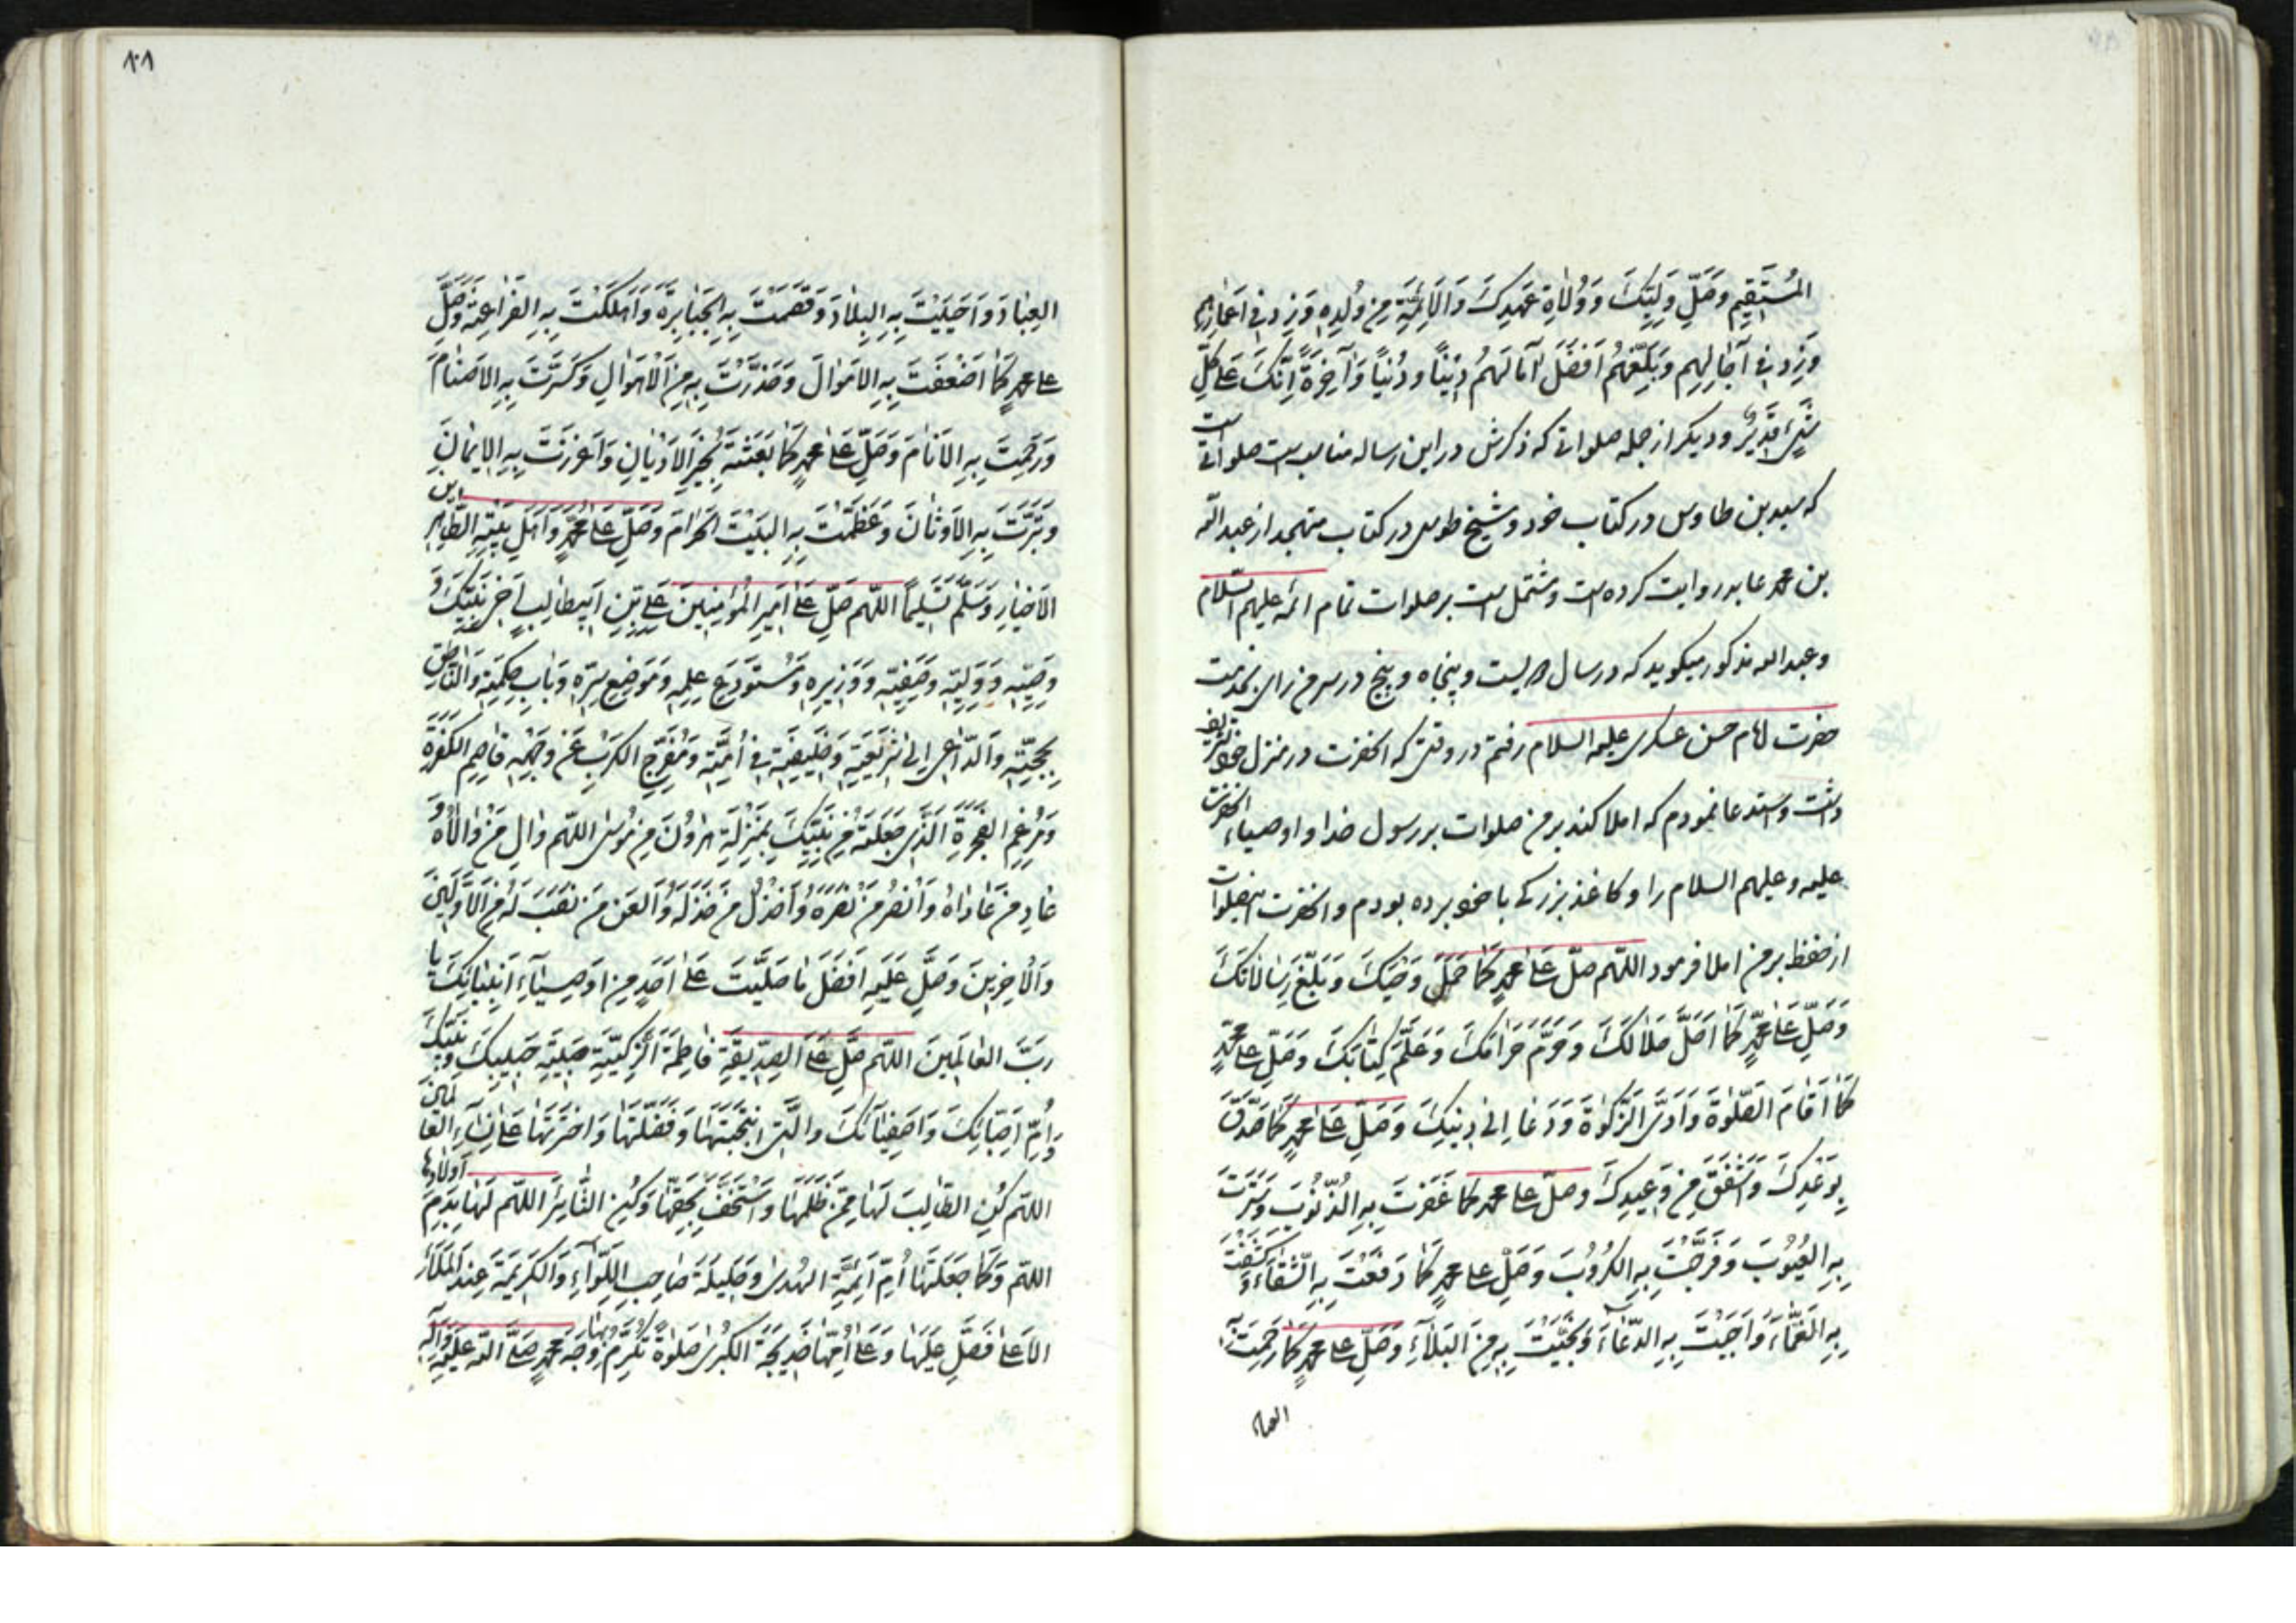 المُسْتَقِيمِ وَصَلِّ وَلِيِّكَ وَوُلَاةِ عَهْدِكَ وَالْاَئِمَّةِ مِنْ وُلْدِهِ وَزِدْ فِي اَعْمَارِهِم
وَزِدْ فِي آجَالِهِمْ وَبَلِّغْهُمْ اَفْضَلَ آمَالِهُمْ دِيناً وَدُنْياً وَآخِرَةً اِنَّكَ عَلَى كُلِّ
شَيْءٍ قَدِيرٌ و ديكر از جمله صلواتی که ذکرش در این رساله مناسب است صلواتی است
که سید بن طاوس در کتاب خود و شیخ طوسی در کتاب متهجد از عبد الله
بن محمد عابد روایت کرده است و مشتمل است بر صلوات تمام ائمه علیهم السّلام
و عبد الله مذکور میکوید که در سال دویست و پنجاه و پنج در سر من رای بخدمت
حضرت امام حسن عسکری علیه السلام رفتم در وقتی که انحضرت در منزل خود تشریف
داشت و استدعا نمودم که املا کند بر من صلوات بر رسول خدا و اوصیاء انحضرت
علیه و علیهم السلام را و کاغذ بزرکی با خود برده بودم و انحضرت این صلوات
از حفظ بر من املا فرمود اللّهم صلّ عَلى محمدٍ كَما حَمَلَ وَحْيَكَ وَبَلَّغَ رِسَالَاتِكَ
وَصَلِّ عَلى محمّدٍ كَمَا اَحَلَّ حَلَالَكَ وَحَرَّمَ حَرَامَكَ وَعَلَّمَ كِتَابَكَ وَصَلِّ عَلى محمّدٍ
كَمَا اَقَامَ الصَّلٰوةَ وَاَدَّى الزَّكٰوةَ وَدَعَا اِلى دِينِكَ وَصَلِّ عَلى محمدٍ كَما صَدَّقَ
بِوَعْدِكَ وَاَشْفَقَ مِنْ وَعِيدِكَ وصلّ على محمد كما غَفَرْتَ بِهِ الذُّنُوبَ وَسَتَرْتَ
بِهِ الْعُيُوبَ وَفَرَّجْتَ بِهِ الْكُرُوبَ وَصَلِّ على محمدٍ كَمَا دَفَعْتَ بِهِ الشَّقَاءَ وَكَشَفْتَ
بِهِ الْغَمَّاءَ وَاَجَبْتَ بِهِ الدُّعَاءَ وَنَجَّيْتَ بِهِ مِنَ الْبَلَاءِ وَصَلِّ على محمدٍ كَمَا رَحِمْتَ بِهِ
العباد
١٠١
العِبَادَ وَاَحْيَيْتَ بِهِ الْبِلَادَ وَقَصَمْتَ بِهِ الْجَبَابِرَةَ وَاَهْلَكْتَ بِهِ الْفَرَاعِنَةَ وَصَلِّ
على محمدٍ كَمَا اَضْعَفْتَ بِهِ الْاَمْوَالَ وَحَذَّرْتَ بِهِ مِنَ الْاَهْوَالِ وَكَسَرْتَ بِهِ الْاَصْنَامَ
وَرَحِمْتَ بِهِ الْاَنَامَ وَصَلِّ عَلى محمدٍ كَمَا بَعَثْتَهُ بِخَيْرِ الْاَدْيَانِ وَاَعْزَزْتَ بِهِ الْاِيمَانَ
وَتَبَّرْتَ بِهِ الْاَوْثَانَ وَعَظَّمْتَ بِهِ الْبَيْتَ الْحَرَامَ وَصَلِّ عَلى محمّدٍ وَاَهْلِ بَيْتِهِ الطَّاهِرِين
الْاَخْيَارِ وَسَلِّمْ تَسْلِيماً اللّهم صَلِّ عَلى اَمِيرِ الْمُؤْمِنِينَ عَلِيِّ بْنِ اَبِيطالِبٍ اَخِي نَبِيِّكَ وَ
وَصِيِّهِ وَوَلِيِّهِ وَصَفِيِّهِ وَوَزِيرِهِ وَمُسْتَوْدَعِ عِلْمِهِ وَمَوْضِعِ سِرِّهِ وَبَابِ حِكْمَتِهِ وَالنَّاطِقِ
بِحُجَّتِهِ وَالدَّاعِي اِلى شَرِيعَتِهِ وَخَلِيفَتِهِ فِي اُمَّتِهِ وَمُفَرِّجِ الْكَرْبِ عَنْ وَجْهِهِ قَاصِمِ الْكَفَرَةِ
وَمُرْغِمِ الْفَجَرَةِ الَّذِي جَعَلْتَهُ مِنْ نَبِيِّكَ بِمَنْزِلَةِ هٰرُونَ مِنْ مُوسٰى اللّهم وَالِ مَنْ وَالَاهُ وَ
عَادِ مَنْ عَادَاهُ وَانْصُرْ مَنْ نَصَرَهُ وَاخْذُلْ مَنْ خَذَلَهُ وَالْعَنْ مَنْ نَصَبَ لَهُ مِنَ الْاَوَّلِينَ
وَالْآخِرِينَ وَصَلِّ عَلَيْهِ اَفْضَلَ مَا صَلَّيْتَ عَلى اَحَدٍ مِنْ اَوْصِيَاءِ اَنْبِيَائِكَ يَا
رَبَّ الْعَالَمِينَ اللّهم صَلِّ عَلَى الصِّدِّيقَةِ فَاطِمَةَ الزَّكِيَّةِ حَبِيبَةِ حَبِيبِكَ وَنَبِيِّكَ
وَاُمِّ اَحِبَّائِكَ وَاَصْفِيَائِكَ وَالَّتِي انْتَجَبْتَهَا وَفَضَّلْتَهَا وَاخْتَرْتَهَا عَلى نِسَاءِ الْعَالَمِينَ
اللهم كُنِ الطَّالِبَ لَهَا مِمَّنْ ظَلَمَهَا وَاسْتَخَفَّ بِحَقِّهَا وَكُنِ الثَّائِرَ اللّهم لَهَا بِدَمِ اَوْلَادِهَا
اللهم وَكَمَا جَعَلْتَهَا اُمَّ اَئِمَّةِ الْهُدٰى وَحَلِيلَةَ صَاحِبِ اللِّوَاءِ وَالْكَرِيمَةَ عِنْدَ الْمَلَاءِ
الْاَعْلى فَصَلِّ عَلَيْهَا وَعَلى اُمِّهَا خَدِيجَةَ الْكُبْرٰى صَلٰوةً تُكْرِمُ بِهَا وَجْهَ محمدٍ صَلَّى اللّه عَلَيْهِ وَآلِهِ